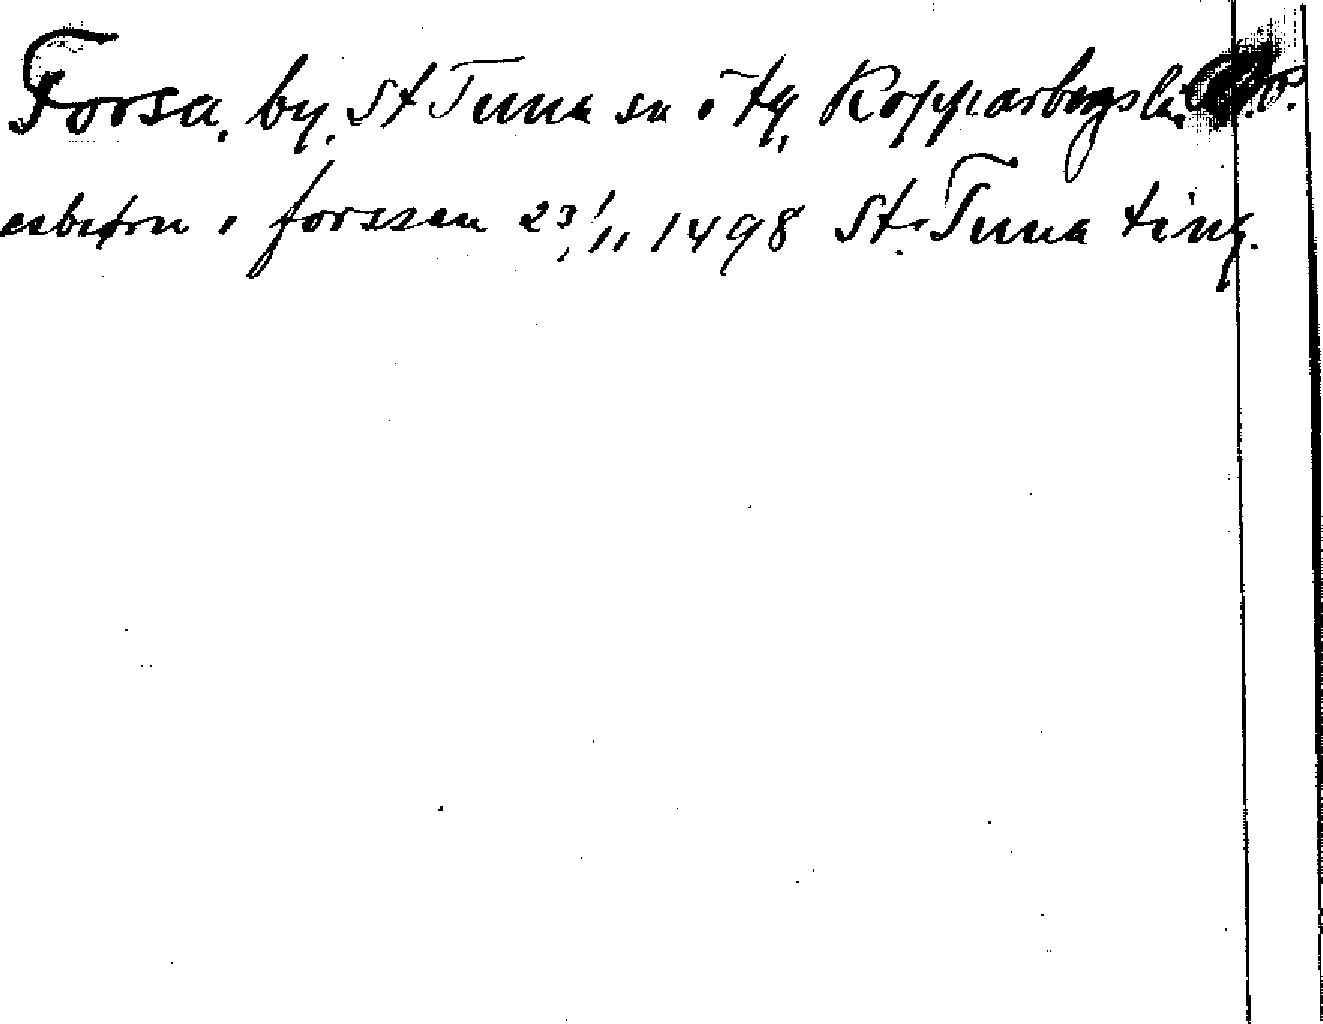 Forsa, by, St Tuna sn o tg, Kopparbergs l.
esbiørn i forssan 23/11 1498 St. Tuna ting.